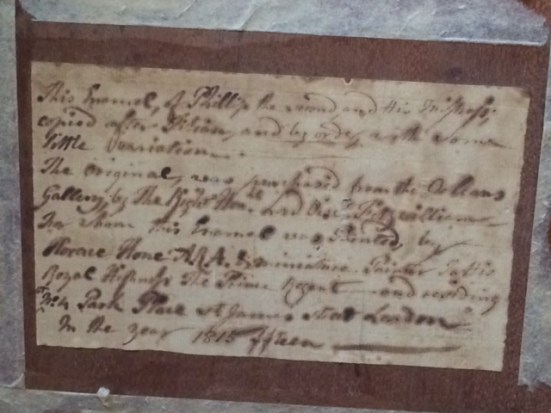 This Enamel, of Phillip the second and His Mistress,
copied after Titian, and by order, with some
little variation.
The Original, was purchased from the Orleans
Gallery, by The Right Hon. Lord Visct. Fitzwilliam
for whom this Enamel was Painted, by
Horace Hone A.R.A. & miniature Painter to His
Royal Highness The Prince Regent and residing
No. 4 Park Place St James Street London
In the year 1815 fifteen